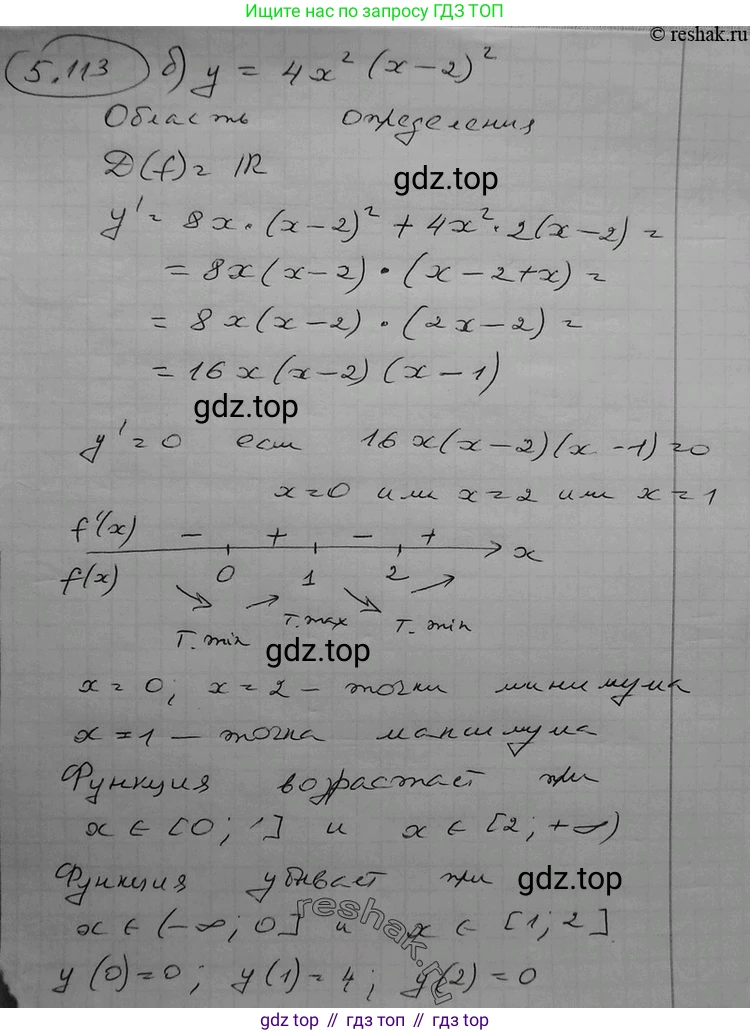 Ищите нас по запросу ГДЗ ТОП
© reshak.ru
5.113 б) y = 4x² (x-2)²
Область определения
D(f) = ℝ
gdz.top
y' = 8x·(x-2)² + 4x²·2(x-2) =
= 8x(x-2)·(x-2+x) =
= 8x(x-2)·(2x-2) =
= 16x(x-2)(x-1)
gdz.top
y'=0 если 16x(x-2)(x-1)=0
x=0 или x=2 или x=1
f'(x) - + - +
f(x) 0 1 2 x
т. min т. max т. min
gdz.top
x=0; x=2 - точки минимума
x=1 - точка максимума
Функция возрастает при
x ∈ [0; 1] и x ∈ [2; +∞)
Функция убывает при
gdz.top
x ∈ (-∞; 0] и x ∈ [1; 2]
reshak.ru
y(0)=0; y(1)=4; y(2)=0
gdz.top // гдз топ // gdz.top